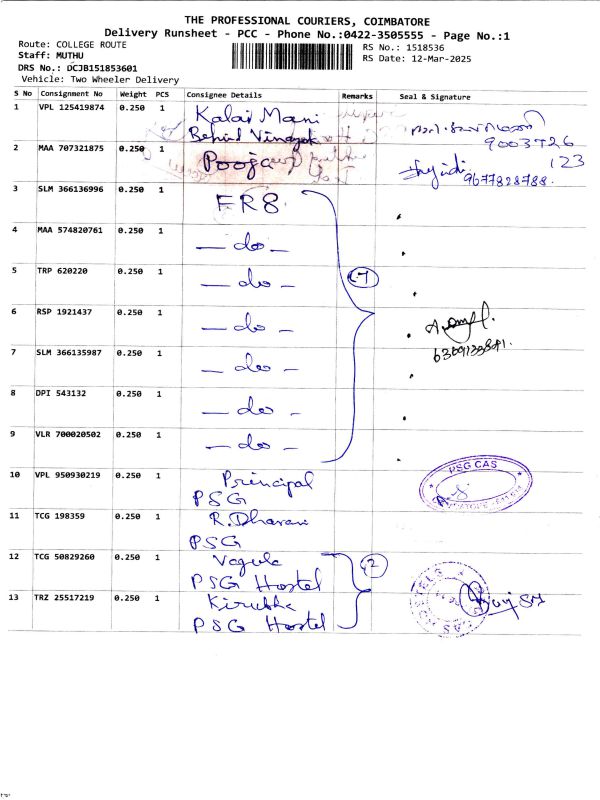 THE PROFESSIONAL COURIERS, COIMBATORE
Delivery Runsheet - PCC - Phone No.:0422-3505555 - Page No.:1
Route: COLLEGE ROUTE
Staff: MUTHU
DRS No.: DCJB151853601
Vehicle: Two Wheeler Delivery
RS No.: 1518536
RS Date: 12-Mar-2025
S No Consignment No Weight PCS Consignee Details Remarks Seal & Signature
1 VPL 125419874 0.250 1 Kalai Mani
Behind 9003726
123
2 MAA 707321875 0.250 1 Pooja 9677828788
3 SLM 366136996 0.250 1 FR8
4 MAA 574820761 0.250 1 - do -
5 TRP 620220 0.250 1 - do - 7
6 RSP 1921437 0.250 1 - do -
7 SLM 366135987 0.250 1 - do -
8 DPI 543132 0.250 1 - do -
9 VLR 700020502 0.250 1 - do -
10 VPL 950930219 0.250 1 Principal PSG CAS
PSG
11 TCG 198359 0.250 1 R.Dharani
PSG
12 TCG 50829260 0.250 1 Vagula 2
PSG Hostel
13 TRZ 25517219 0.250 1 Kirubha
PSG Hostel